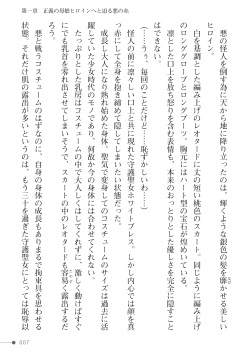 第一章　正義の母娘ヒロインへと迫る悪の命
　悪の怪人を倒す為に天から地に降り立ったのは、輝くような銀色の髪を靡かせる美しい
ヒロイン。
　白を基調とした編み上げのレオタードに丈の短い桃色のスカート、同じように編み上げ
のロンググローブとロングブーツ。胸元にはハート型の宝石が煌めいている。
　凛とした口上を放ちながらも、本来のおっとりとした優しさを完全に隠すこと
はできない表情。
（……うぅ、毎回のことだけど……恥ずかしいわ……）
　怪人の前に凛々しい口上と共に現れた守護聖女ホワイトブレス。しかし内心では顔を真
っ赤にして全身を抱き締めて隠してしまいたい状態だった。
　成長し大人になり熟し始めた身体。聖気で変身してのコスチュームのサイズは過去に活
躍していた少女時代のモノであり、何故か今の身体には合っていない。
　たっぷりとした乳房はコスチュームの中で大人しくはしてくれずに、激しく動けばすぐ
にでも乳首を零れ出させてしまいそうで、スカートの中のレオタードも容易く露出するだ
ろう。
　悪と戦うコスチュームのはずなのに、自身の身体の成長もありまるで拘束具を思わせる
状態。それだけ肌の露出が多いというのは、もう三十を過ぎた守護聖女にとっては恥辱以
007